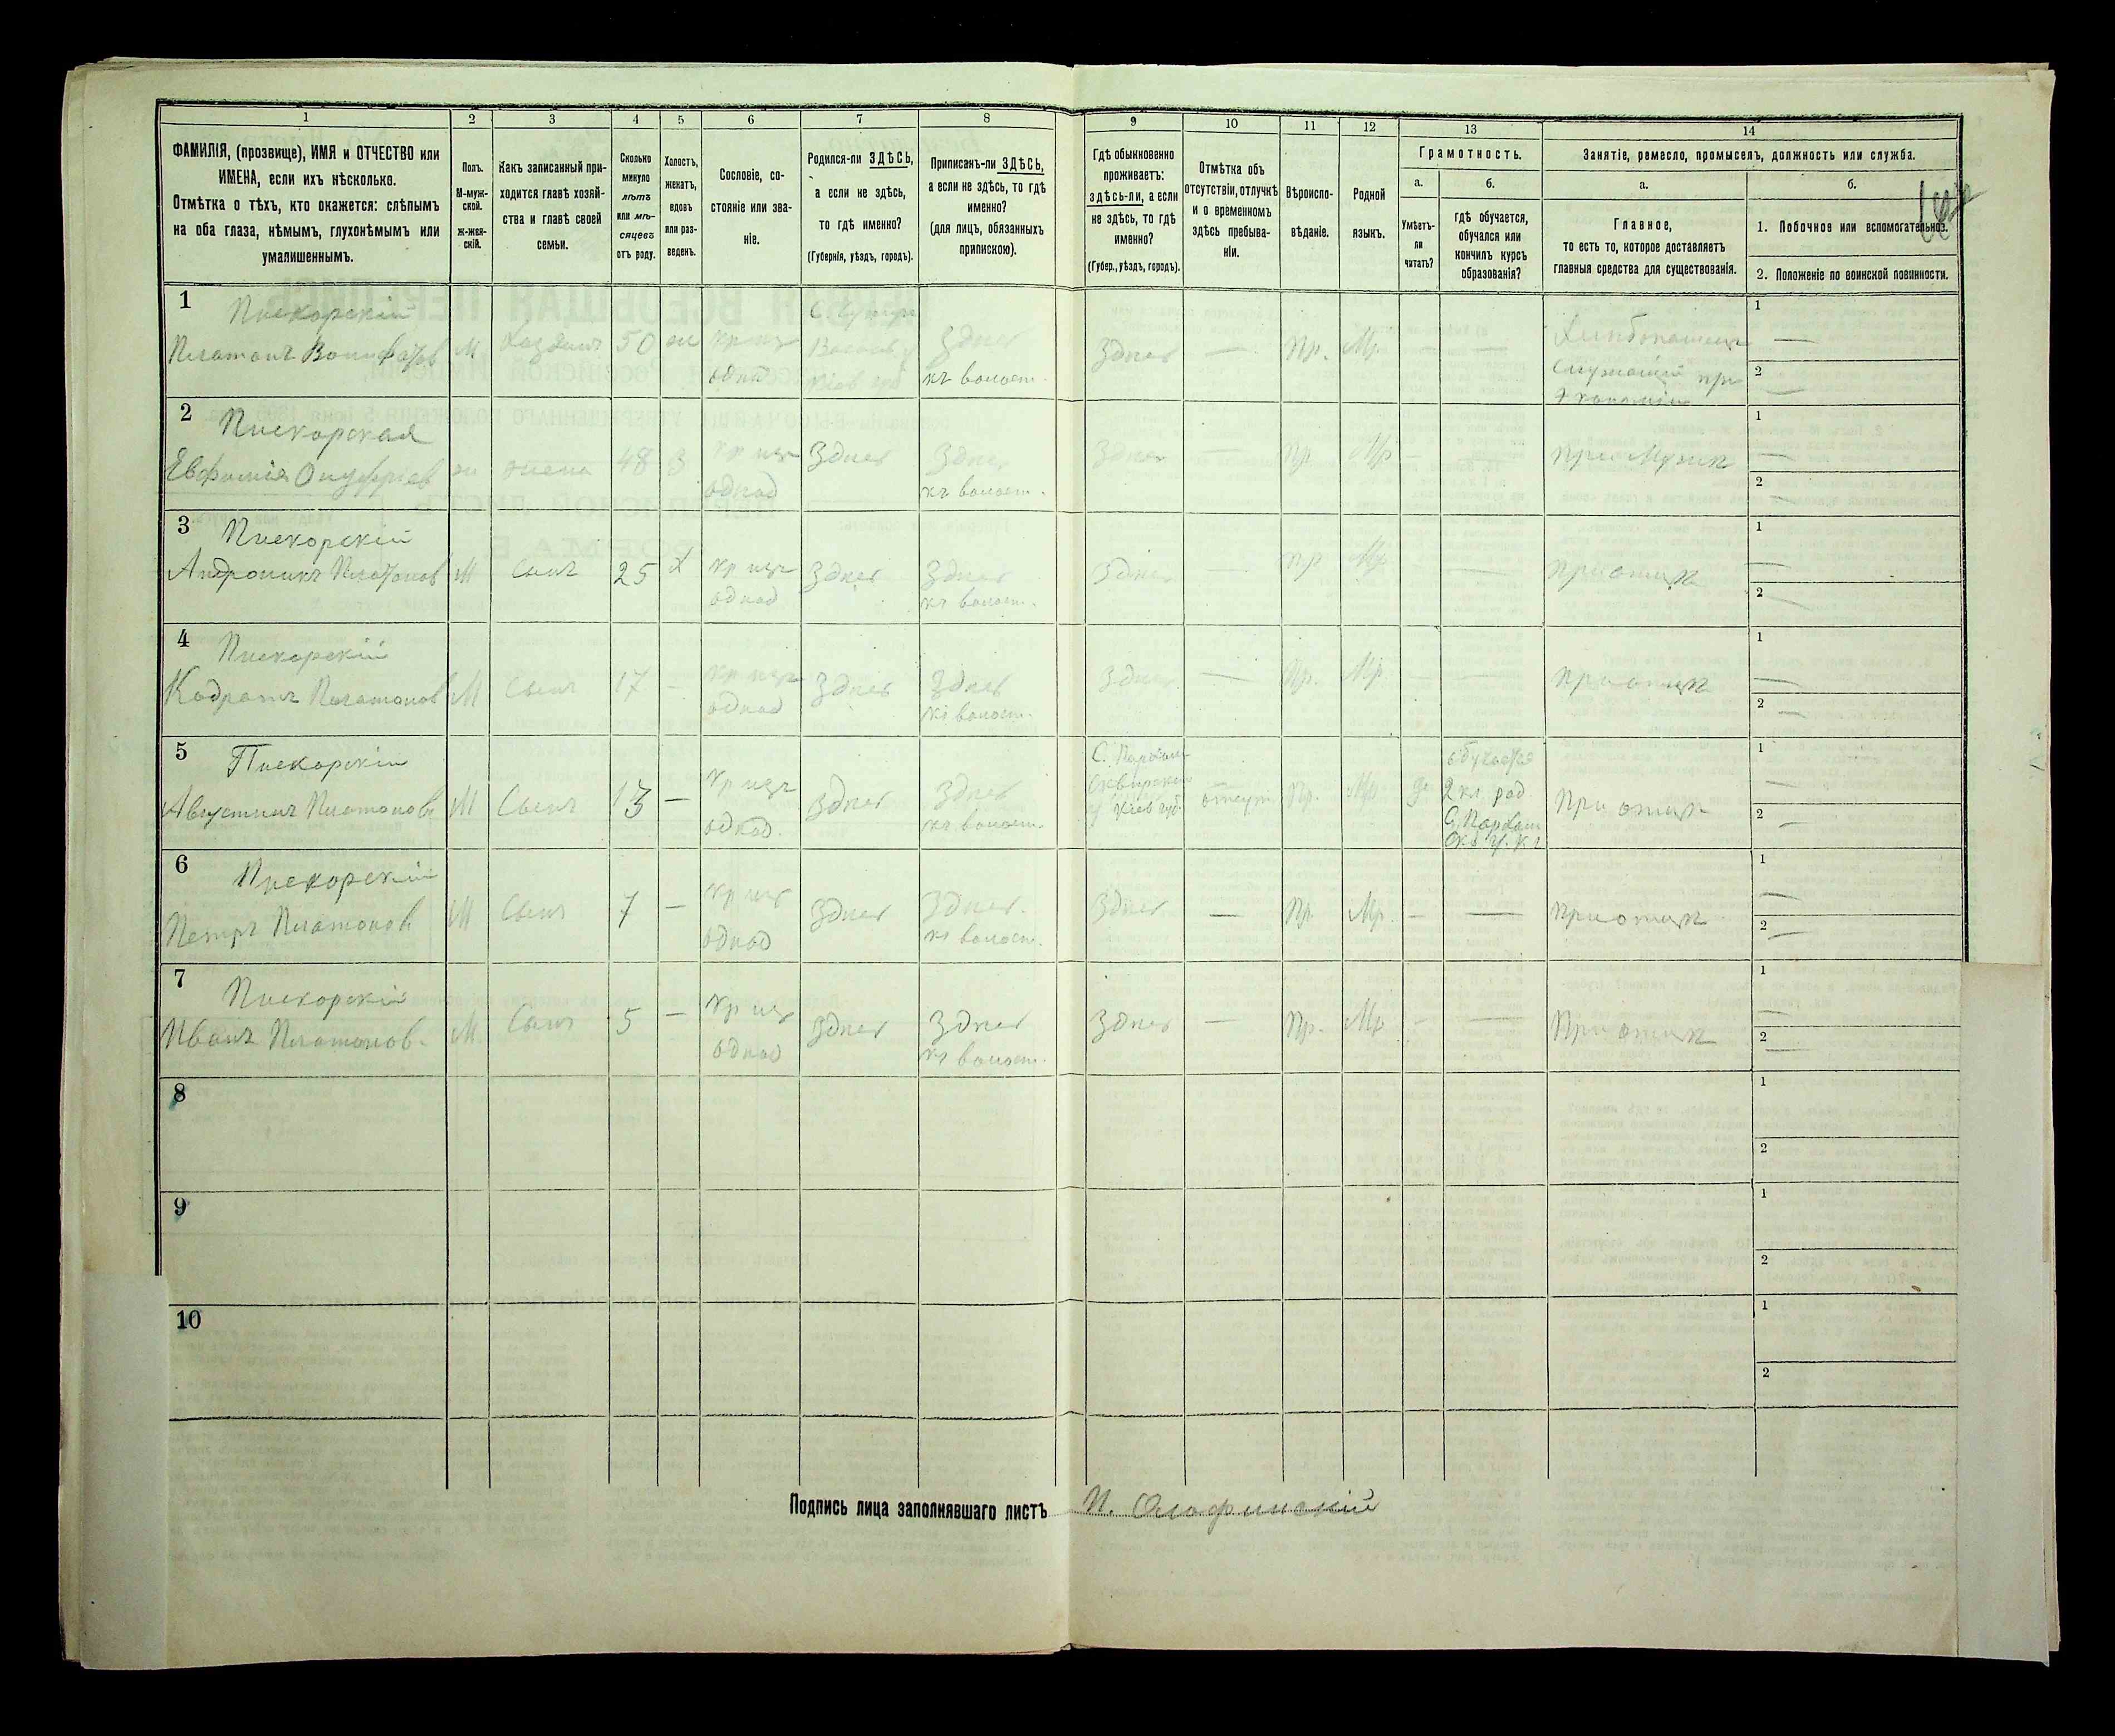 1 2 3 4 5 6 7 8 9 10 11 12 13 14
ФАМИЛІЯ, (прозвище), ИМЯ и ОТЧЕСТВО или
ИМЕНА, если ихъ нѣсколько.
Отмѣтка о тѣхъ, кто окажется: слѣпымъ
на оба глаза, нѣмымъ, глухонѣмымъ или
умалишеннымъ.
Полъ.
М-муж-
ской.
ж-жен-
скій.
Какъ записанный при-
ходится главѣ хозяй-
ства и главѣ своей
семьи.
Сколько
минуло
лѣтъ
или мѣ-
сяцевъ
отъ роду.
Холостъ,
женатъ,
вдовъ
или раз-
веденъ.
Сословіе, со-
стояніе или зва-
ніе.
Родился-ли ЗДѢСЬ,
а если не здѣсь,
то гдѣ именно?
(Губернія, уѣздъ, городъ).
Приписанъ-ли ЗДѢСЬ,
а если не здѣсь, то гдѣ
именно?
(для лицъ, обязанныхъ
припискою).
Гдѣ обыкновенно
проживаетъ:
здѣсь-ли, а если
не здѣсь, то гдѣ
именно?
(Губер., уѣздъ, городъ).
Отмѣтка объ
отсутствіи, отлучкѣ
и о временномъ
здѣсь пребыва-
ніи.
Вѣроиспо-
вѣданіе.
Родной
языкъ.
Грамотность.
а.
Умѣетъ-
ли
читать?
б.
гдѣ обучается,
обучался или
кончилъ курсъ
образованія?
Занятіе, ремесло, промыселъ, должность или служба.
а.
Главное,
то есть то, которое доставляетъ
главныя средства для существованія.
б.
1. Побочное или вспомогательное.
2. Положеніе по воинской повинности.
1 Пискорскій
Платонъ Вонифатов М Хозяинъ 50 ж Кр изъ однод Здѣсь къ волост. Здѣсь — Пр. Мр. — —
Служащій при
Экономіи
1 —
2 —
2 Пискорская
Евфимія Онуфріев ж жена 48 З Кр изъ однод Здѣсь Здѣсь къ волост. Здѣсь — Пр Мр — — при Мужѣ
1 —
2 —
3 Пискорскій
Андроникъ Платонов М Сынъ 25 Х Кр изъ однод Здѣсь Здѣсь къ волост. Здѣсь — Пр Мр — при отцѣ
1 —
2 —
4 Пискорскій
Кодратъ Платонов М Сынъ 17 - Кр изъ однод Здѣсь Здѣсь къ волост. Здѣсь — Пр. Мр. — — при отцѣ
1 —
2 —
5 Пискорскій
Августинъ Платонов М Сынъ 13 — Кр изъ однод. Здѣсь Здѣсь къ волост.
Сквирскаго
у Кіев губ. отсут Пр. Мр да
обучается
2 кл
при отцѣ
1 —
2 —
6 Пискорскій
Петръ Платонов М Сынъ 7 — Кр изъ однод Здѣсь Здѣсь. къ волост. Здѣсь — Пр. Мр. — — при отцѣ
1 —
2 —
7 Пискорскій
Иванъ Платонов. М Сынъ 5 — Кр изъ однод Здѣсь Здѣсь къ волост. Здѣсь — Пр. Мр — — При отцѣ
1 —
2 —
8 1
2
9 1
2
10 1
2
Подпись лица заполнявшаго листъ